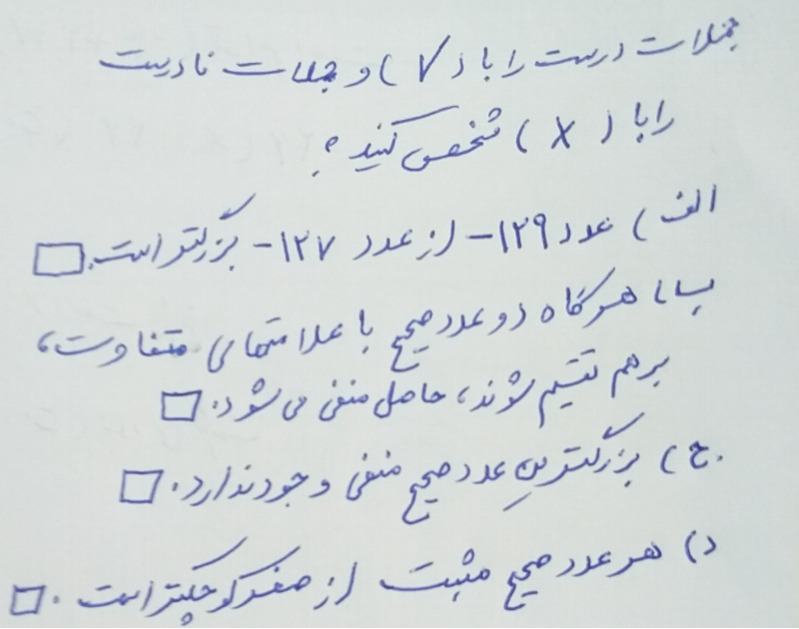 جملات درست را با (✓) و جملات نادرست
را با (X) مشخص کنید؟
الف) عدد ۱۲۹- از عدد ۱۲۷- بزرگتر است. □
ب) هرگاه دو عدد صحیح با علامتهای متفاوت،
برهم تقسیم شوند، حاصل منفی می شود. □
ج) بزرگترین عدد صحیح منفی وجود ندارد. □
د) هر عدد صحیح مثبت از صفر کوچکتر است. □